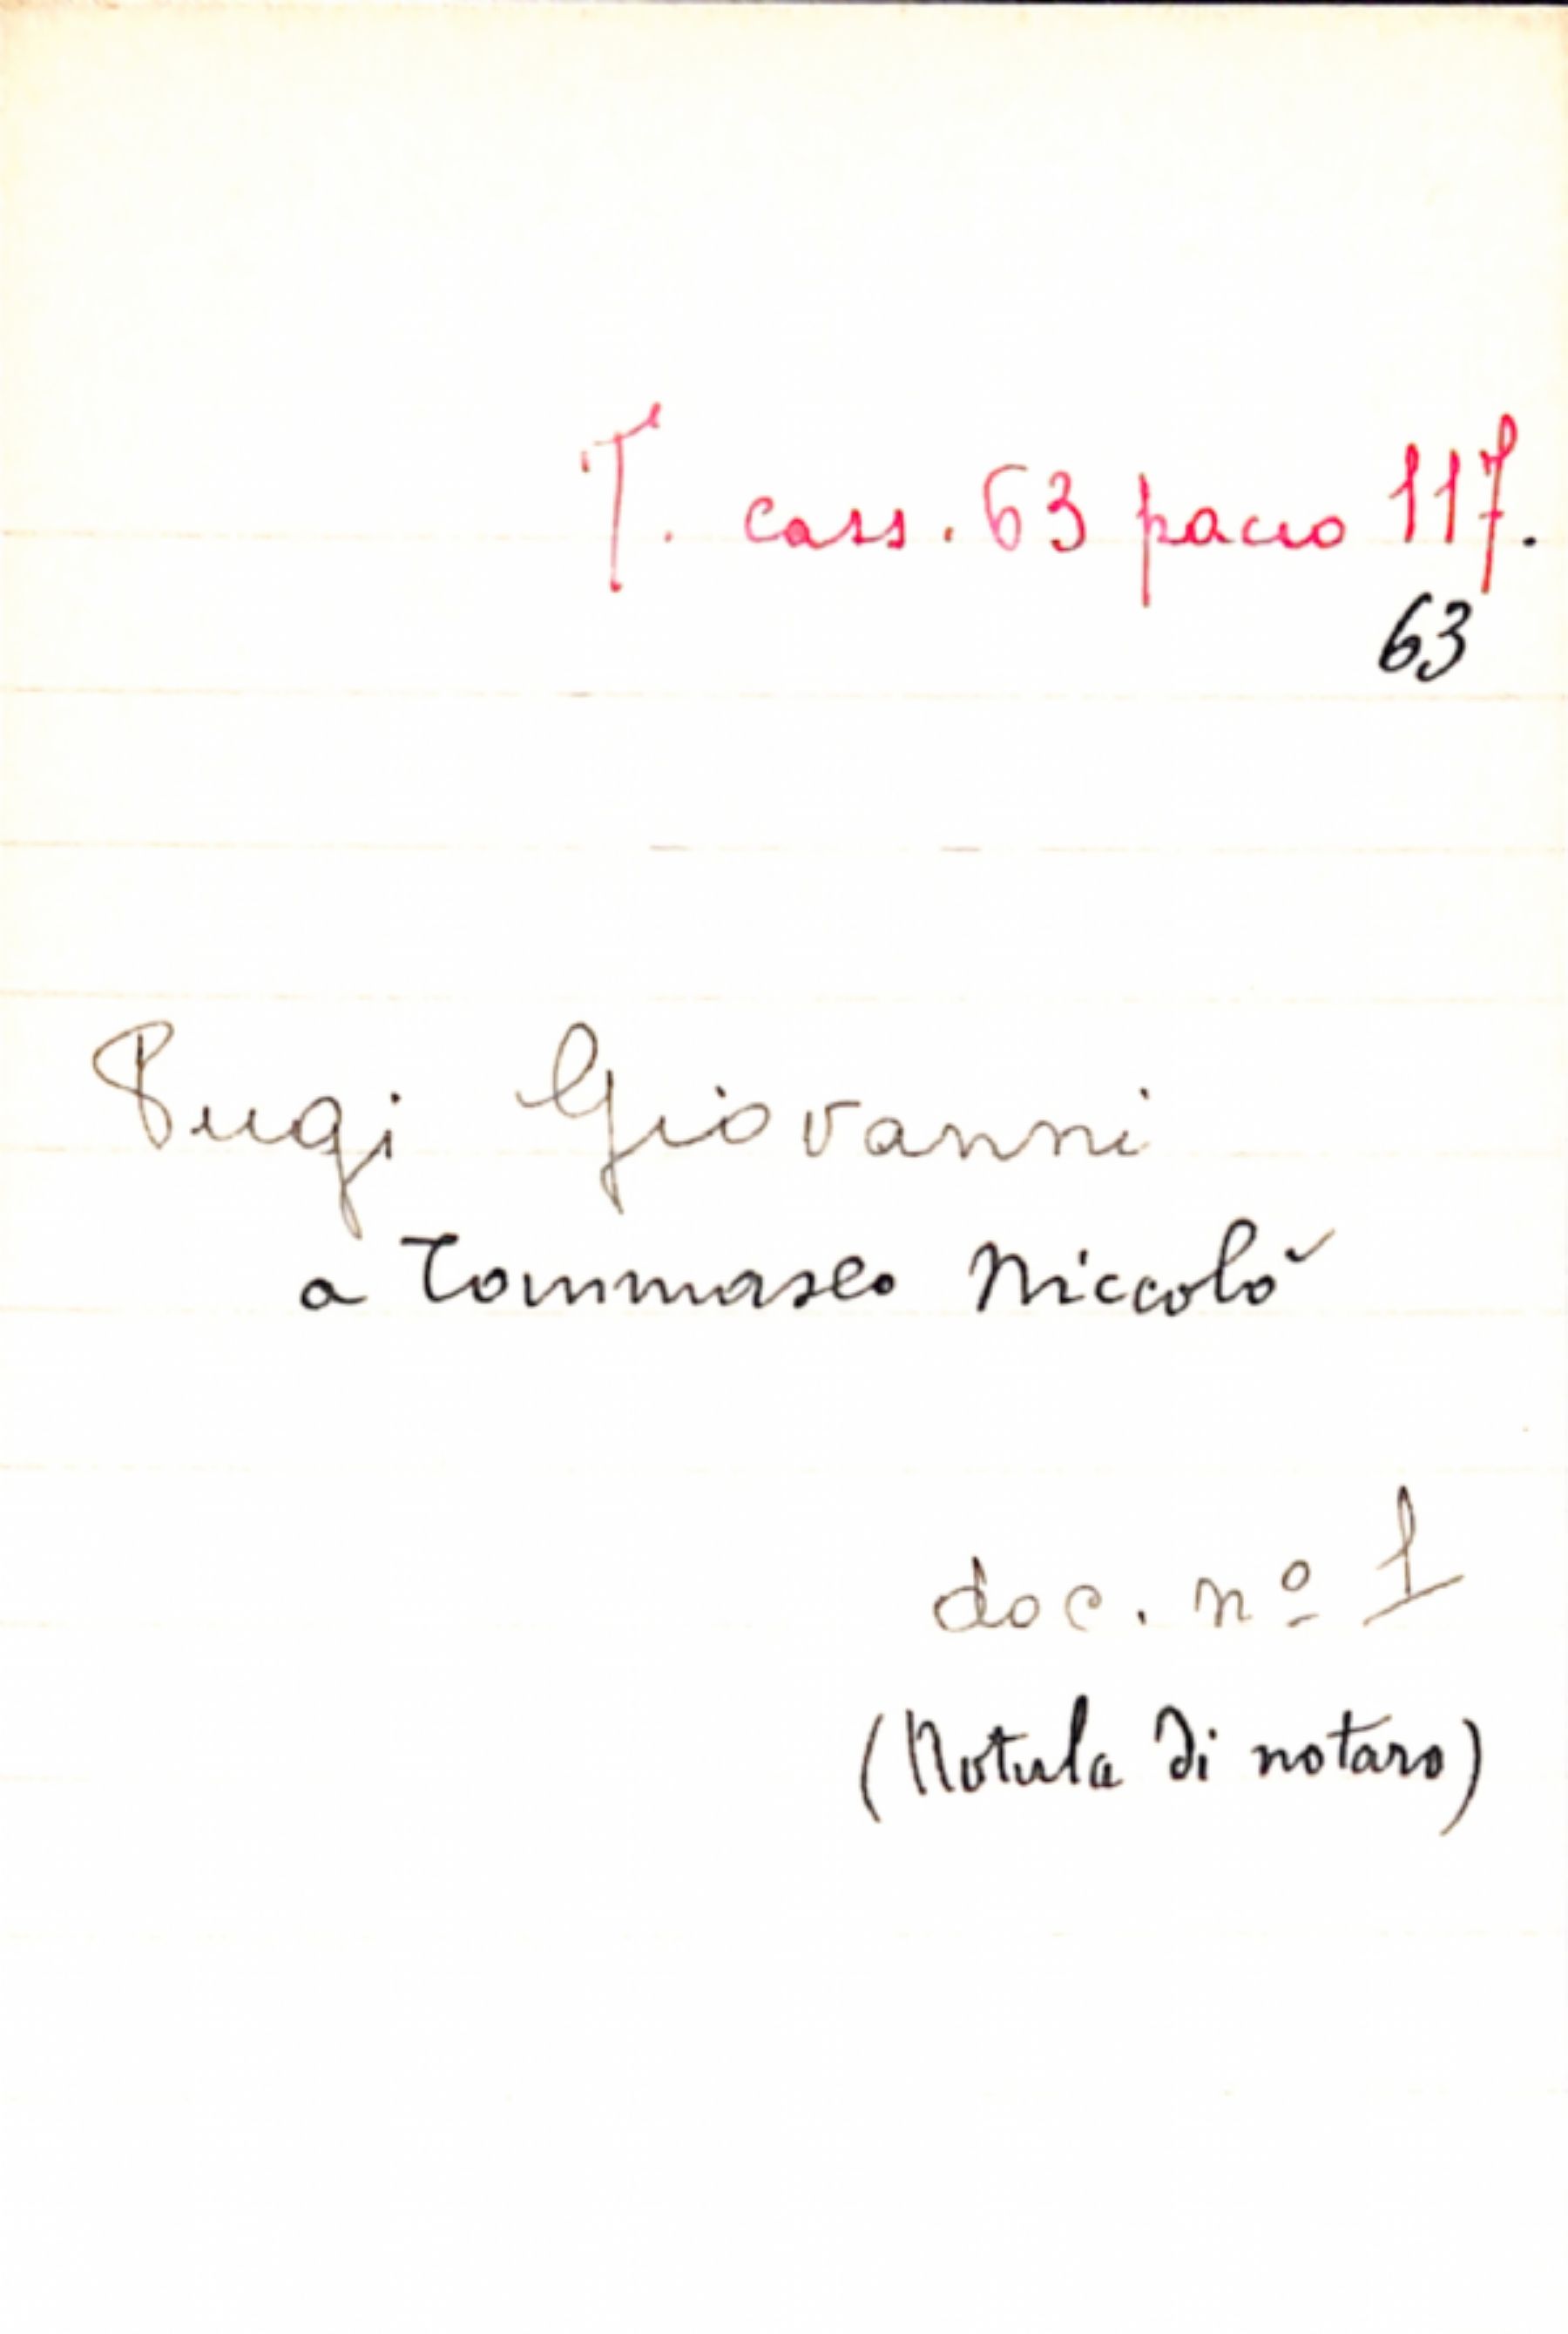 T. cass. 63 pacco 117.
63
Pugi Giovanni
a Tommaseo Niccolò
doc. nº 1
(Notula di notaro)